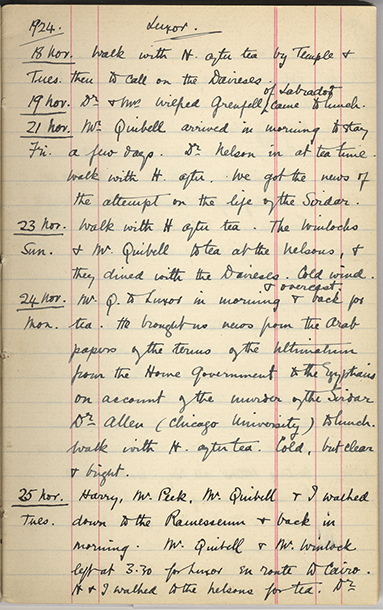 1924. Luxor.
18 Nov. Walk with H. after tea by Temple &
Tues. then to call on the Davieses.
19 Nov. Dr. & Mrs Wilfred Grenfell, of Labrador, came to lunch.
21 Nov. Mr. Quibell arrived in morning to stay
Fri. a few days. Dr. Nelson in at tea time.
Walk with H. after. We got the news of
the attempt on the life of the Sirdar.
23 Nov. Walk with H after tea. The Winlocks
Sun. & Mr. Quibell to tea at the Nelsons, &
they dined with the Davieses. Cold wind & overcast.
24 Nov. Mr. Q. to Luxor in morning & back for
Mon. tea. He brought us news from the Arab
papers of the terms of the Ultimatum
from the Home Government to the Egyptians
on account of the murder of the Sirdar
Dr. Allen (Chicago University) to lunch.
Walk with H. after tea. Cold, but clear
& bright.
25 Nov. Harry, Mr. Peck, Mr. Quibell & I walked
Tues. down to the Ramesseum & back in
morning. Mr. Quibell & Mr. Winlock
left at 3.30 for Luxor en route to Cairo.
H & I walked to the Nelsons for tea. Dr.